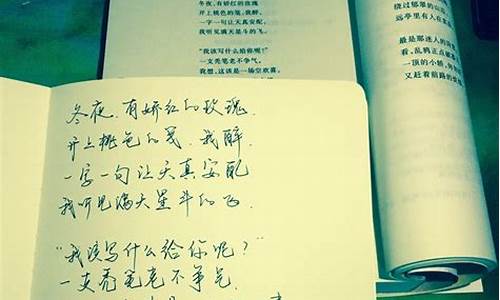 冬夜，有娇红的玫瑰
开上桃色的笺，我醉，
一字一句让天真安配，
我听见满天星斗的飞。
“我该写什么给你呢？”
一支秃笔老不争气，
我想，这该是一场空欢喜，
绕过郁翠的山
远亭里有人在
最是那迷人的
看，乱鸦正点破
一顶的小轿，
又赶着前路的
冬夜，有娇红的玫瑰，
开上桃色的笺，我醉，
一字一句让天真安配
我听见满天星斗的飞．
“我该写什么给你呢？”
一支秃笔老不争气．